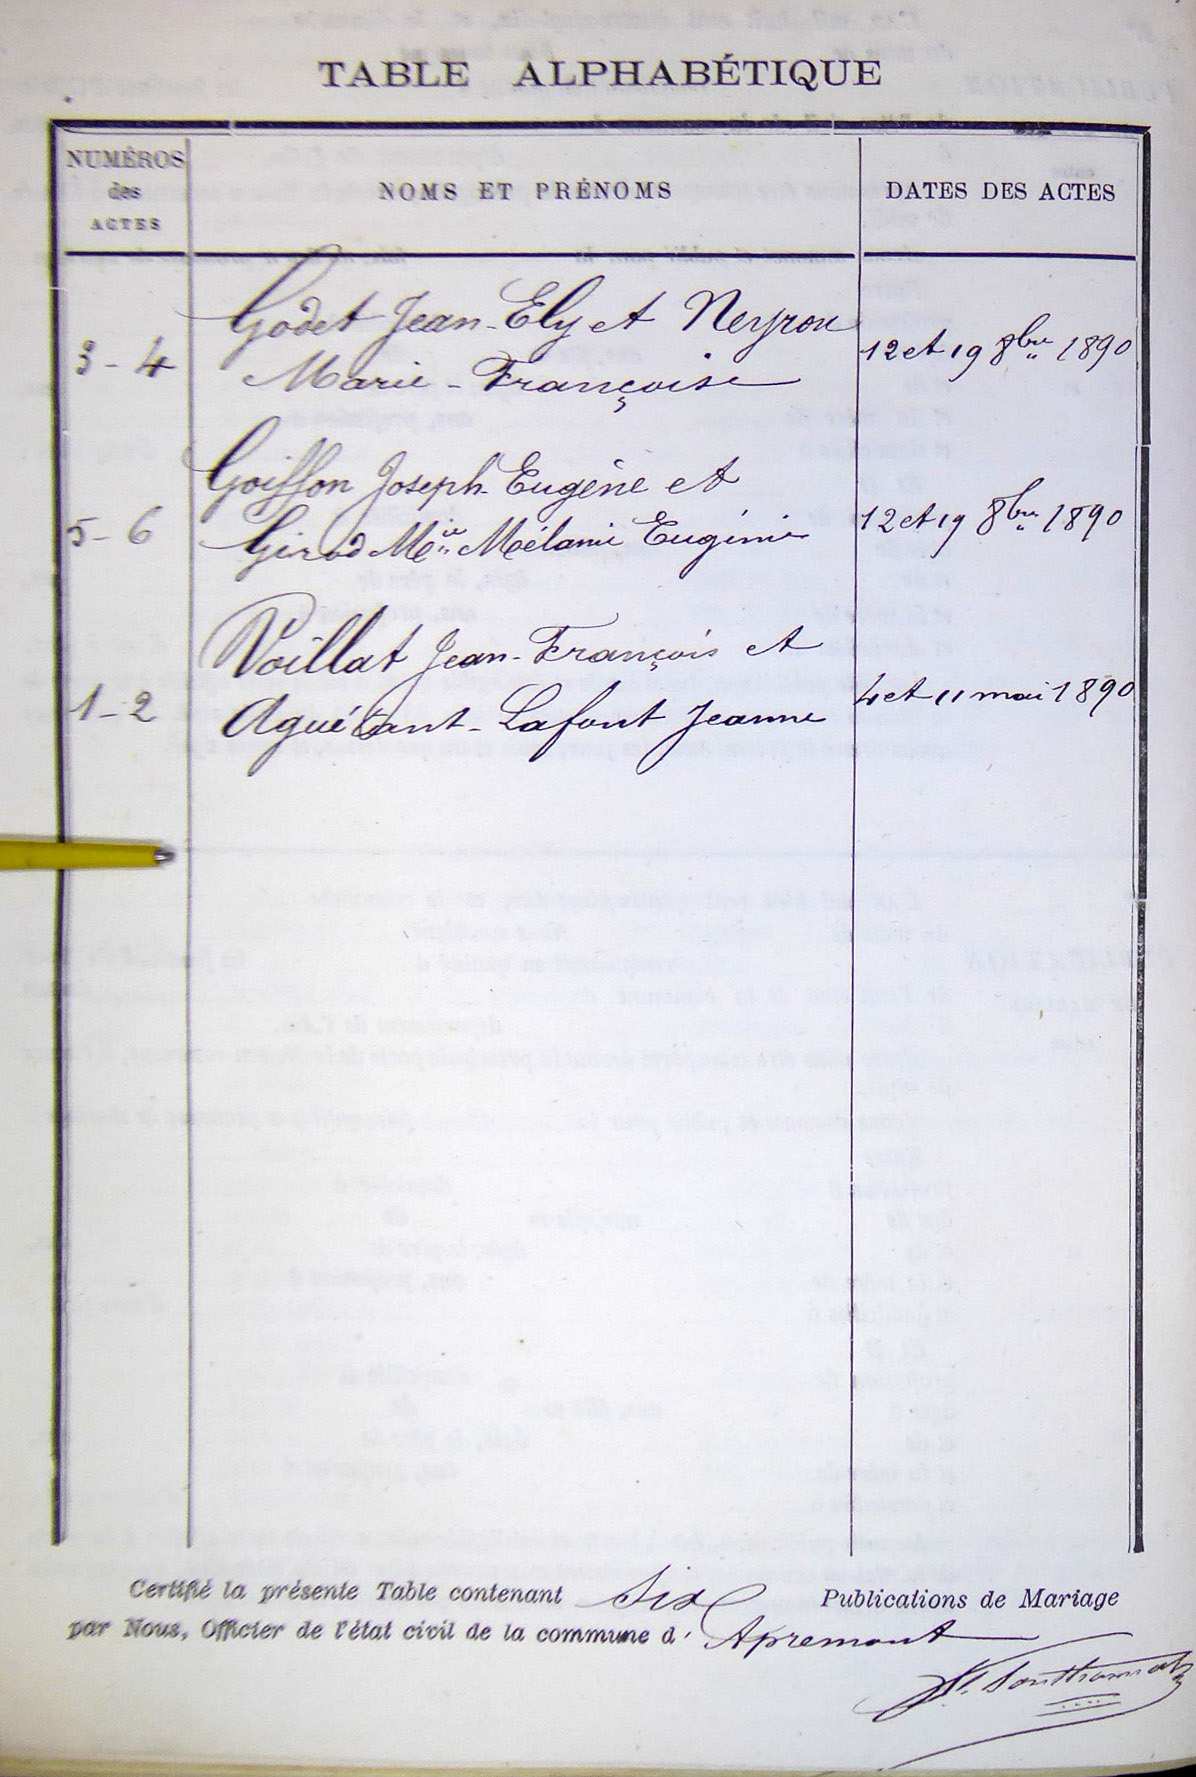 TABLE ALPHABÉTIQUE
NUMÉROS
des
ACTES
NOMS ET PRÉNOMS
DATES DES ACTES
3-4
Godet Jean-Ely et Neyron
Marie-Françoise
12 et 19 8bre 1890
5-6
Goiffon Joseph-Eugène et
Girod Mie Mélanie Eugénie
12 et 19 8bre 1890
1-2
Voillat Jean-François et
Aguétant-Lafont Jeanne
4 et 11 mai 1890
Certifié la présente Table contenant six Publications de Mariage
par Nous, Officier de l'état civil de la commune d' Apremont